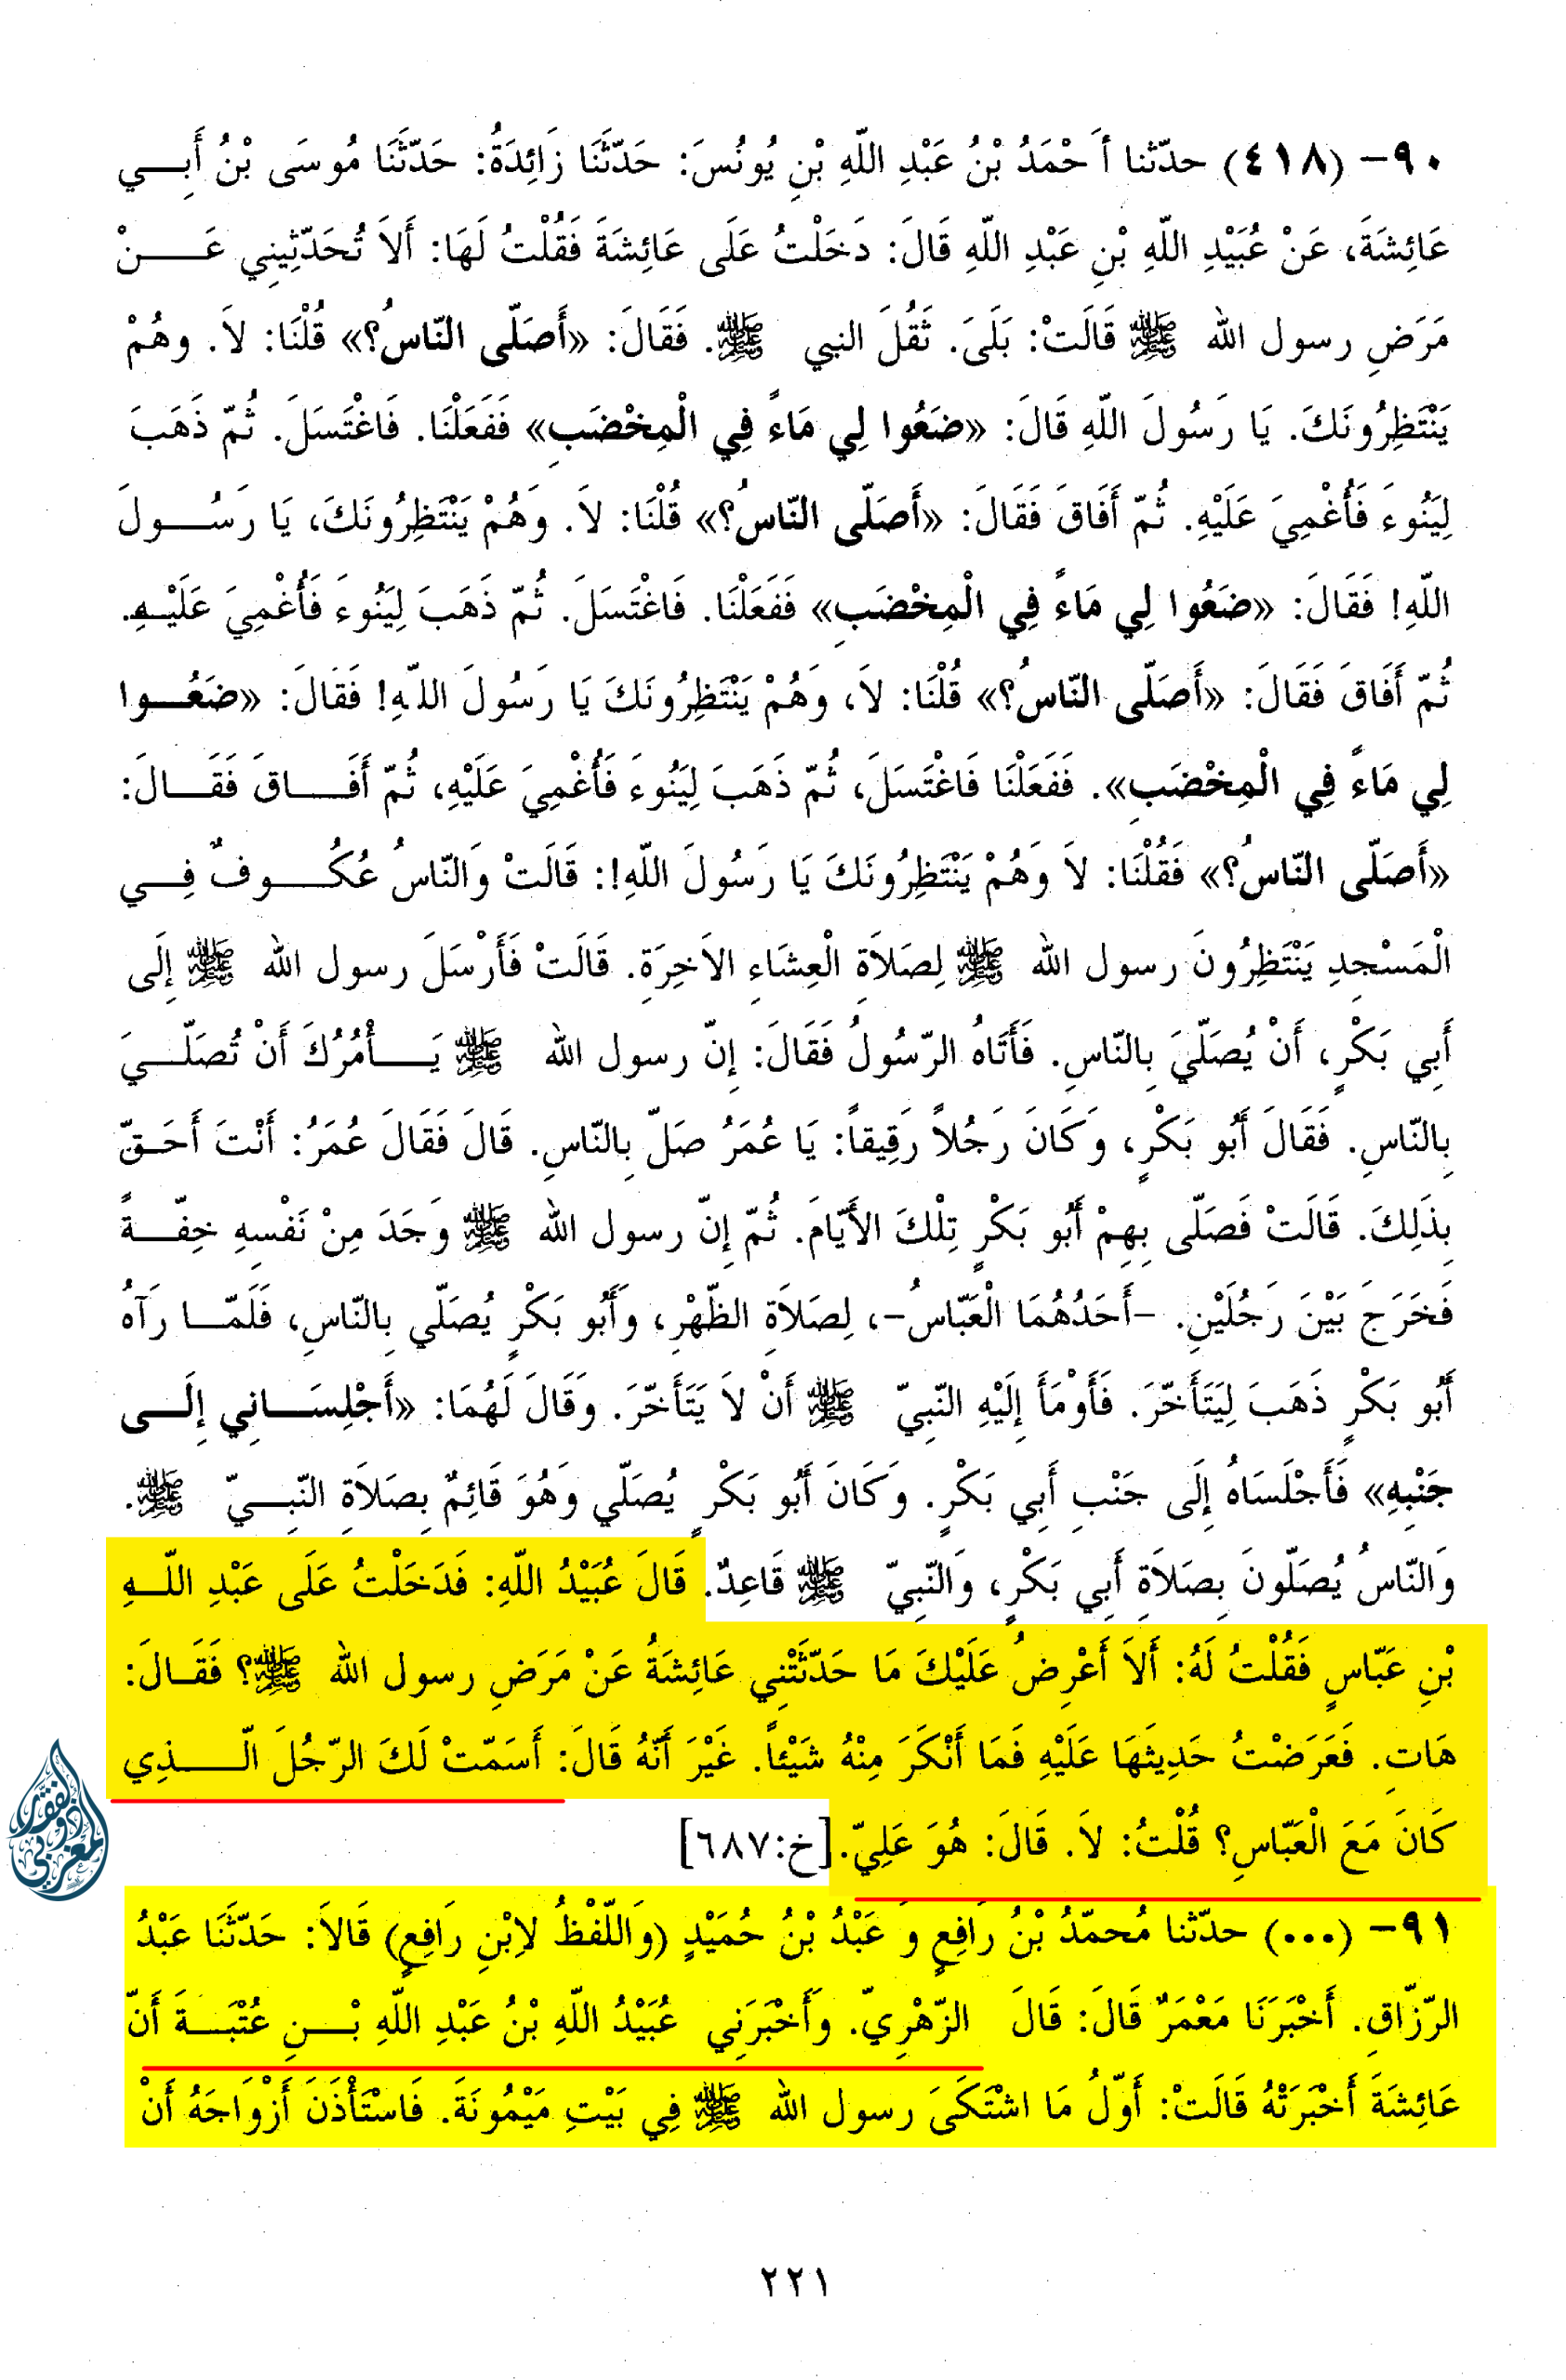 ٩٠- (٤١٨) حدّثنا أَحْمَدُ بْنُ عَبْدِ اللّهِ بْنِ يُونُسَ: حَدّثَنَا زَائِدَةُ: حَدّثَنَا مُوسَى بْنُ أَبِي
عَائِشَةَ، عَنْ عُبَيْدِ اللّهِ بْنِ عَبْدِ اللّهِ قَالَ: دَخَلْتُ عَلَى عَائِشَةَ فَقُلْتُ لَهَا: أَلاَ تُحَدّثِينِي عَنْ
مَرَضِ رسول الله ﷺ قَالَتْ: بَلَىَ. ثَقُلَ النبي ﷺ. فَقَالَ: «أَصَلّى النّاسُ؟» قُلْنَا: لاَ. وهُمْ
يَنْتَظِرُونَكَ. يَا رَسُولَ اللّهِ قَالَ: «ضَعُوا لِي مَاءً فِي الْمِخْضَبِ» فَفَعَلْنَا. فَاغْتَسَلَ. ثُمّ ذَهَبَ
لِيَنُوءَ فَأُغْمِيَ عَلَيْهِ. ثُمّ أَفَاقَ فَقَالَ: «أَصَلّى النّاسُ؟» قُلْنَا: لاَ. وَهُمْ يَنْتَظِرُونَكَ، يَا رَسُولَ
اللّهِ! فَقَالَ: «ضَعُوا لِي مَاءً فِي الْمِخْضَبِ» فَفَعَلْنَا. فَاغْتَسَلَ. ثُمّ ذَهَبَ لِيَنُوءَ فَأُغْمِيَ عَلَيْهِ.
ثُمّ أَفَاقَ فَقَالَ: «أَصَلّى النّاسُ؟» قُلْنَا: لاَ، وَهُمْ يَنْتَظِرُونَكَ يَا رَسُولَ اللّهِ! فَقَالَ: «ضَعُوا
لِي مَاءً فِي الْمِخْضَبِ». فَفَعَلْنَا فَاغْتَسَلَ، ثُمّ ذَهَبَ لِيَنُوءَ فَأُغْمِيَ عَلَيْهِ، ثُمّ أَفَاقَ فَقَالَ:
«أَصَلّى النّاسُ؟» فَقُلْنَا: لاَ وَهُمْ يَنْتَظِرُونَكَ يَا رَسُولَ اللّهِ!: قَالَتْ وَالنّاسُ عُكُوفٌ فِي
الْمَسْجِدِ يَنْتَظِرُونَ رسول الله ﷺ لِصَلاَةِ الْعِشَاءِ الاَخِرَةِ. قَالَتْ فَأَرْسَلَ رسول الله ﷺ إِلَى
أَبِي بَكْرٍ، أَنْ يُصَلّيَ بِالنّاسِ. فَأَتَاهُ الرّسُولُ فَقَالَ: إِنّ رسول الله ﷺ يَأْمُرُكَ أَنْ تُصَلّيَ
بِالنّاسِ. فَقَالَ أَبُو بَكْرٍ، وَكَانَ رَجُلاً رَقِيقاً: يَا عُمَرُ صَلّ بِالنّاسِ. قَالَ فَقَالَ عُمَرُ: أَنْتَ أَحَقّ
بِذَلِكَ. قَالَتْ فَصَلّى بِهِمْ أَبُو بَكْرٍ تِلْكَ الأَيّامَ. ثُمّ إِنّ رسول الله ﷺ وَجَدَ مِنْ نَفْسِهِ خِفّةً
فَخَرَجَ بَيْنَ رَجُلَيْنِ. -أَحَدُهُمَا الْعَبّاسُ-، لِصَلاَةِ الظّهْرِ، وَأَبُو بَكْرٍ يُصَلّي بِالنّاسِ، فَلَمّا رَآهُ
أَبُو بَكْرٍ ذَهَبَ لِيَتَأَخّرَ. فَأَوْمَأَ إِلَيْهِ النّبِيّ ﷺ أَنْ لاَ يَتَأَخّرَ. وَقَالَ لَهُمَا: «أَجْلِسَانِي إِلَى
جَنْبِهِ» فَأَجْلَسَاهُ إِلَى جَنْبِ أَبِي بَكْرٍ. وَكَانَ أَبُو بَكْرٍ يُصَلّي وَهُوَ قَائِمٌ بِصَلاَةِ النّبِيّ ﷺ.
وَالنّاسُ يُصَلّونَ بِصَلاَةِ أَبِي بَكْرٍ، وَالنّبِيّ ﷺ قَاعِدٌ. قَالَ عُبَيْدُ اللّهِ: فَدَخَلْتُ عَلَى عَبْدِ اللّهِ
بْنِ عَبّاسٍ فَقُلْتُ لَهُ: أَلاَ أَعْرِضُ عَلَيْكَ مَا حَدّثَتْنِي عَائِشَةُ عَنْ مَرَضِ رسول الله ﷺ؟ فَقَالَ:
هَاتِ. فَعَرَضْتُ حَدِيثَهَا عَلَيْهِ فَمَا أَنْكَرَ مِنْهُ شَيْئاً. غَيْرَ أَنّهُ قَالَ: أَسَمّتْ لَكَ الرّجُلَ الّذِي
كَانَ مَعَ الْعَبّاسِ؟ قُلْتُ: لاَ. قَالَ: هُوَ عَلِيّ. [خ:٦٨٧]
٩١- (...) حدّثنا مُحمّدُ بْنُ رَافِعٍ وَ عَبْدُ بْنُ حُمَيْدٍ (وَاللّفْظُ لاِبْنِ رَافِعٍ) قَالاَ: حَدّثَنَا عَبْدُ
الرّزّاقِ. أَخْبَرَنَا مَعْمَرٌ قَالَ: قَالَ الزّهْرِيّ. وَأَخْبَرَنِي عُبَيْدُ اللّهِ بْنُ عَبْدِ اللّهِ بْنِ عُتْبَةَ أَنّ
عَائِشَةَ أَخْبَرَتْهُ قَالَتْ: أَوّلُ مَا اشْتَكَىَ رسول الله ﷺ فِي بَيْتِ مَيْمُونَةَ. فَاسْتَأْذَنَ أَزْوَاجَهُ أَنْ
ذو الفقار
المغربي
٢٢١